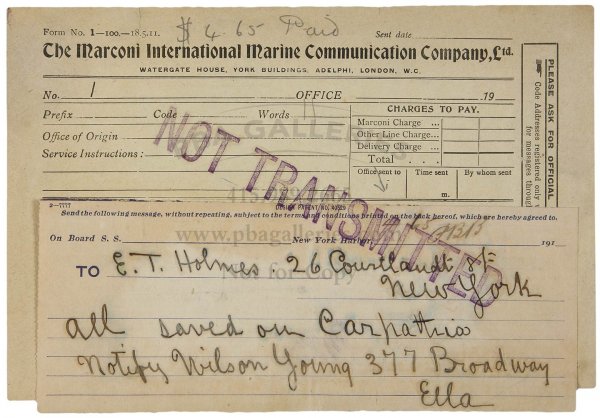 $4.65 Paid
Form No. 1—100.—18.5.11. Sent date
The Marconi International Marine Communication Company, Ltd.
WATERGATE HOUSE, YORK BUILDINGS, ADELPHI, LONDON, W.C.
No. 1 OFFICE 19
Prefix Code Words
Office of Origin
Service Instructions:
CHARGES TO PAY.
Marconi Charge ...
Other Line Charge ...
Delivery Charge ...
Total
Office sent to Time sent By whom sent
PLEASE ASK FOR OFFICIAL
Code Addresses registered only
for messages through
NOT TRANSMITTED
GALLERIES
2-7777
Send the following message, without repeating, subject to the terms and conditions printed on the back hereof, which are hereby agreed to.
www.pbagalleries.com
On Board S. S. New York Harbor, 191
TO E. T. Holmes. 26 Courtlandt st
New York
Not for Copy
all saved on Carpathia
Notify Wilson Young 377 Broadway
Ella